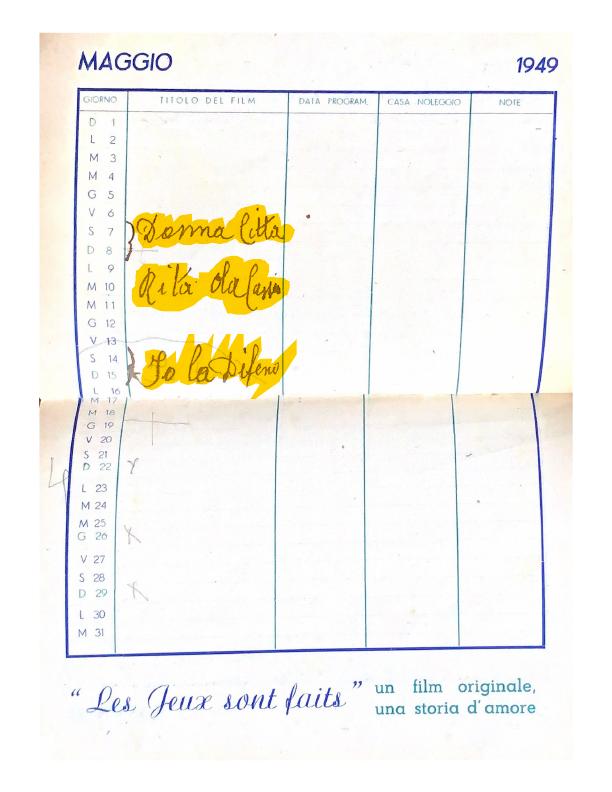 MAGGIO 1949
GIORNO TITOLO DEL FILM DATA PROGRAM. CASA NOLEGGIO NOTE
D 1
L 2
M 3
M 4
G 5
V 6
S 7 Donna Citta
D 8
L 9
M 10 Rita da Cassia
M 11
G 12
V 13
S 14
D 15 Io la Difeno
L 16
M 17
M 18
G 19
V 20
S 21
D 22
L 23
M 24
M 25
G 26
V 27
S 28
D 29
L 30
M 31
“ Les Jeux sont faits ” un film originale,
una storia d'amore